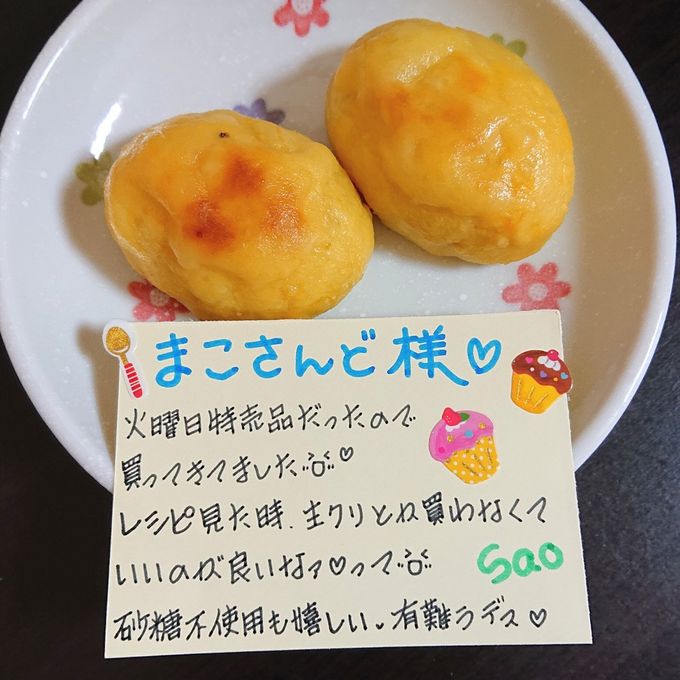 まこさんど様♡
火曜日特売品だったので
買ってきてました♡
レシピ見た時、生クリとか買わなくて
いいのが良いなァ♡って
砂糖不使用も嬉しい。有難うデス♡
Sao